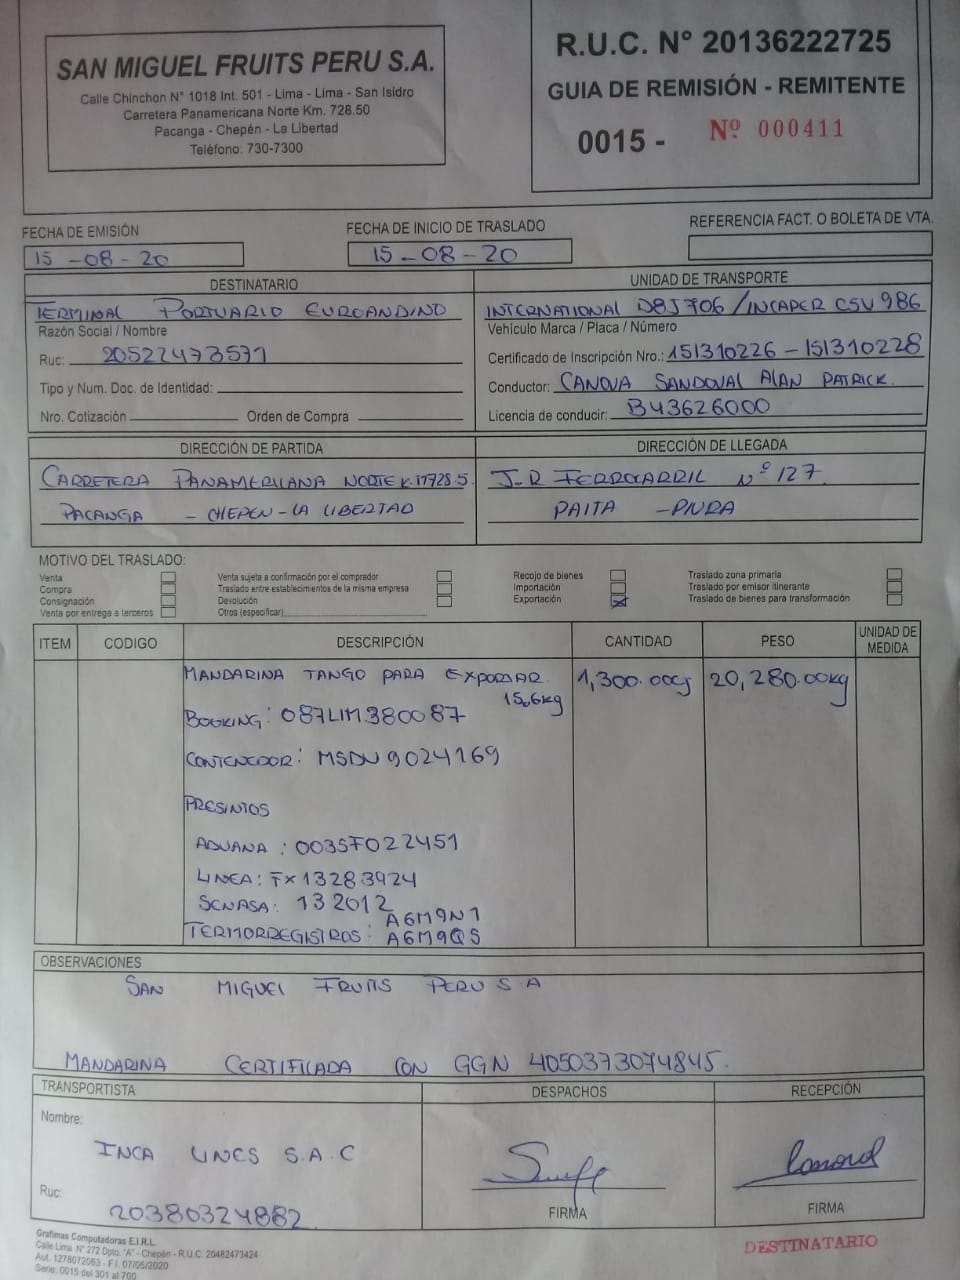 SAN MIGUEL FRUITS PERU S.A.
Calle Chinchon N° 1018 Int. 501 - Lima - Lima - San Isidro
Carretera Panamericana Norte Km. 728.50
Pacanga - Chepén - La Libertad
Teléfono: 730-7300
R.U.C. N° 20136222725
GUIA DE REMISIÓN - REMITENTE
0015 - Nº 000411
FECHA DE EMISIÓN
15-08-20
FECHA DE INICIO DE TRASLADO
15-08-20
REFERENCIA FACT. O BOLETA DE VTA.
DESTINATARIO
TERMINAL PORTUARIO EUROANDINO
Razón Social / Nombre
Ruc: 20522473571
Tipo y Num. Doc. de Identidad:
Nro. Cotización Orden de Compra
UNIDAD DE TRANSPORTE
INTERNATIONAL D8J706 / INCAPER CSV986
Vehículo Marca / Placa / Número
Certificado de Inscripción Nro.: 151310226 - 151310228
Conductor: CANOVA SANDOVAL ALAN PATRICK.
Licencia de conducir: B43626000
DIRECCIÓN DE PARTIDA
CARRETERA PANAMERICANA NORTE K.M728.5
PACANGA - CHEPEN - LA LIBERTAD
DIRECCIÓN DE LLEGADA
J.R FERROCARRIL N° 127
PAITA - PIURA
MOTIVO DEL TRASLADO:
Venta
Compra
Consignación
Venta por entrega a terceros
Venta sujeta a confirmación por el comprador
Traslado entre establecimientos de la misma empresa
Devolución
Otros (especificar)
Recojo de bienes
Importación
Exportación
Traslado zona primaria
Traslado por emisor itinerante
Traslado de bienes para transformación
ITEM CODIGO DESCRIPCIÓN CANTIDAD PESO UNIDAD DE MEDIDA
MANDARINA TANGO PARA EXPORTAR. 1,300.00cj 20,280.00kg
15.6kg
BOOKING: 087LIM380087
CONTENEDOR: MSDU9024169
PRESINTOS
ADUANA : 0035F022451
LINEA: FX13283924
SENASA: 132012
A6M9N1
TERMORREGISTROS: A6M9QS
OBSERVACIONES
SAN MIGUEL FRUITS PERU S.A
MANDARINA CERTIFICADA CON GGN 4050373074845.
TRANSPORTISTA
Nombre:
INCA LINES S.A.C
Ruc:
20380324882
DESPACHOS
FIRMA
RECEPCIÓN
FIRMA
Grafimas Computadoras E.I.R.L.
Calle Lima N° 272 Dpto. "A" - Chepén - R.U.C. 20482473424
Aut. 1278072063 - F.I. 07/05/2020
Serie: 0015 del 301 al 700
DESTINATARIO